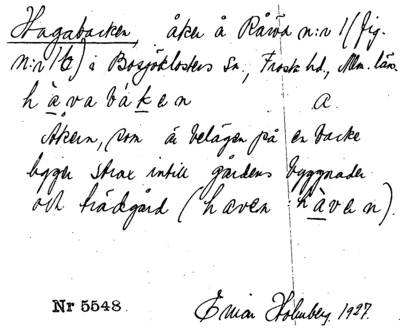 Hagabacken, åker å Råröd n:r 1 (fig.
n:r 16) i Bosjöklosters sn, Frosta hd, Mlm. län.
hàvabáken a.
Åkern, som är belägen på en backe
ligger strax intill gårdens byggnader
och trädgård (haven hàven).
Nr 5548 Holmberg. 1927.